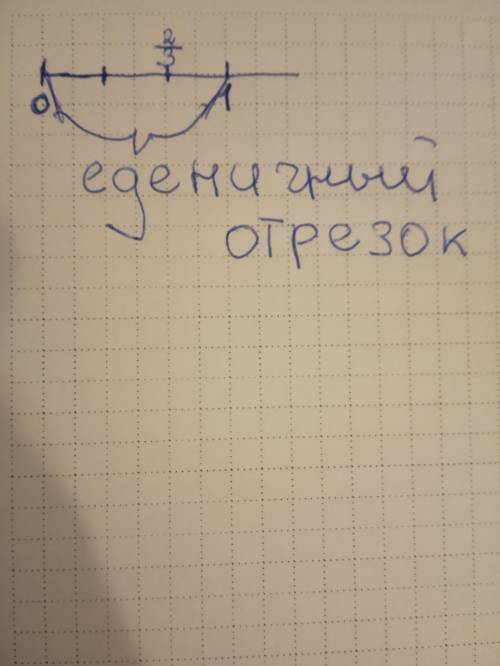 2/3
0 1
еденичный
отрезок